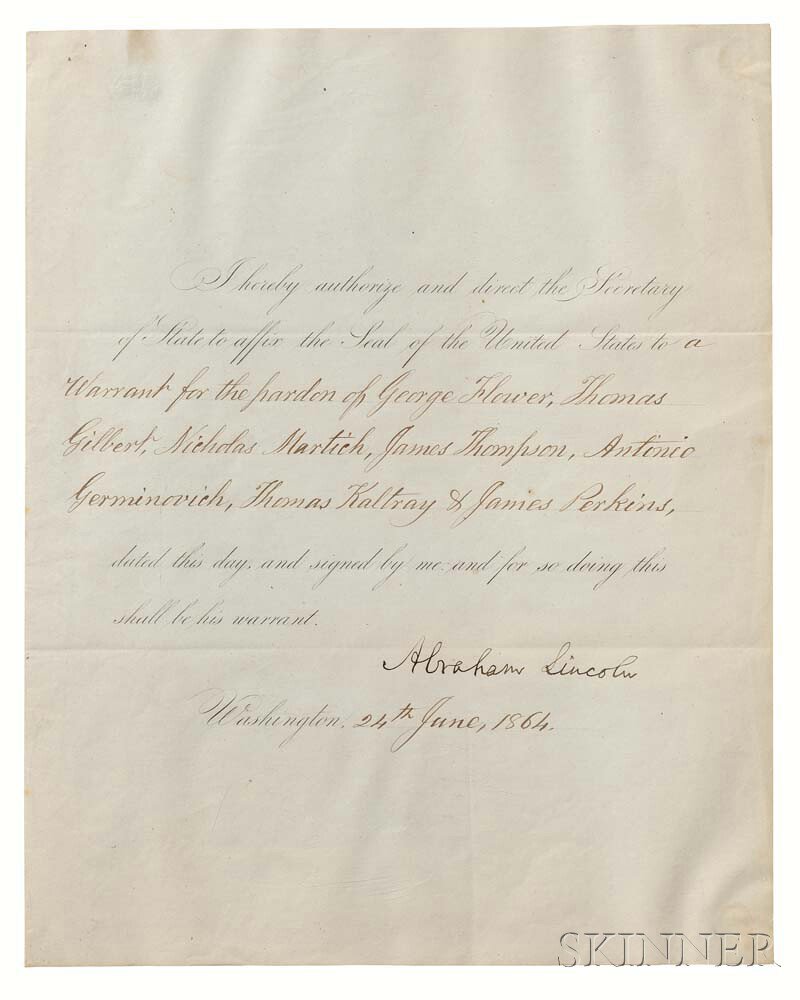 I hereby authorize and direct the Secretary
of State to affix the Seal of the United States to a
Warrant for the pardon of George Flower, Thomas
Gilbert, Nicholas Martich, James Thompson, Antonio
Germinovich, Thomas Kaltray & James Perkins,
dated this day, and signed by me: and for so doing this
shall be his warrant.
Abraham Lincoln
Washington, 24th June, 1864.
SKINNER